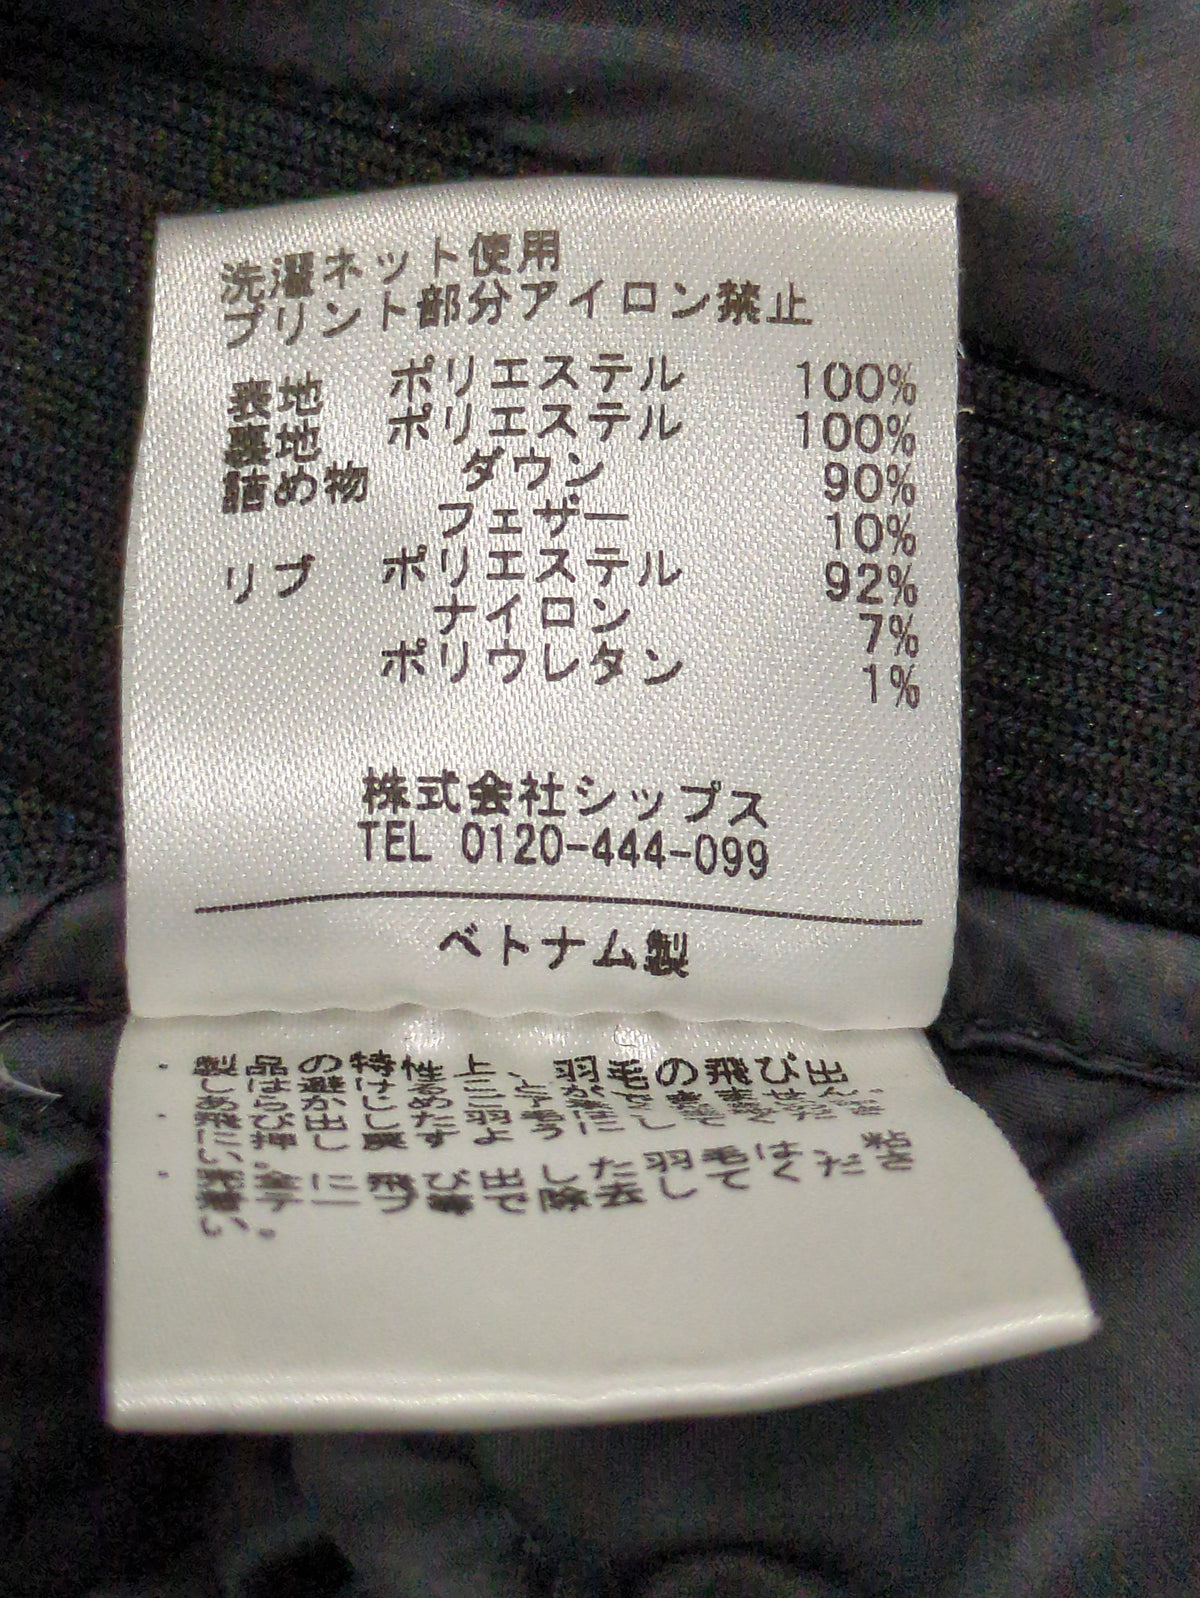 洗濯ネット使用
プリント部分アイロン禁止
表地 ポリエステル 100%
裏地 ポリエステル 100%
詰め物 ダウン 90%
フェザー 10%
リブ ポリエステル 92%
ナイロン 7%
ポリウレタン 1%
株式会社シップス
TEL 0120-444-099
ベトナム製
・製品の特性上、羽毛の飛び出
しは避けること
・飛び出した羽毛
・完全に飛び出した羽毛は粘
着テ 除去してくださ
い。